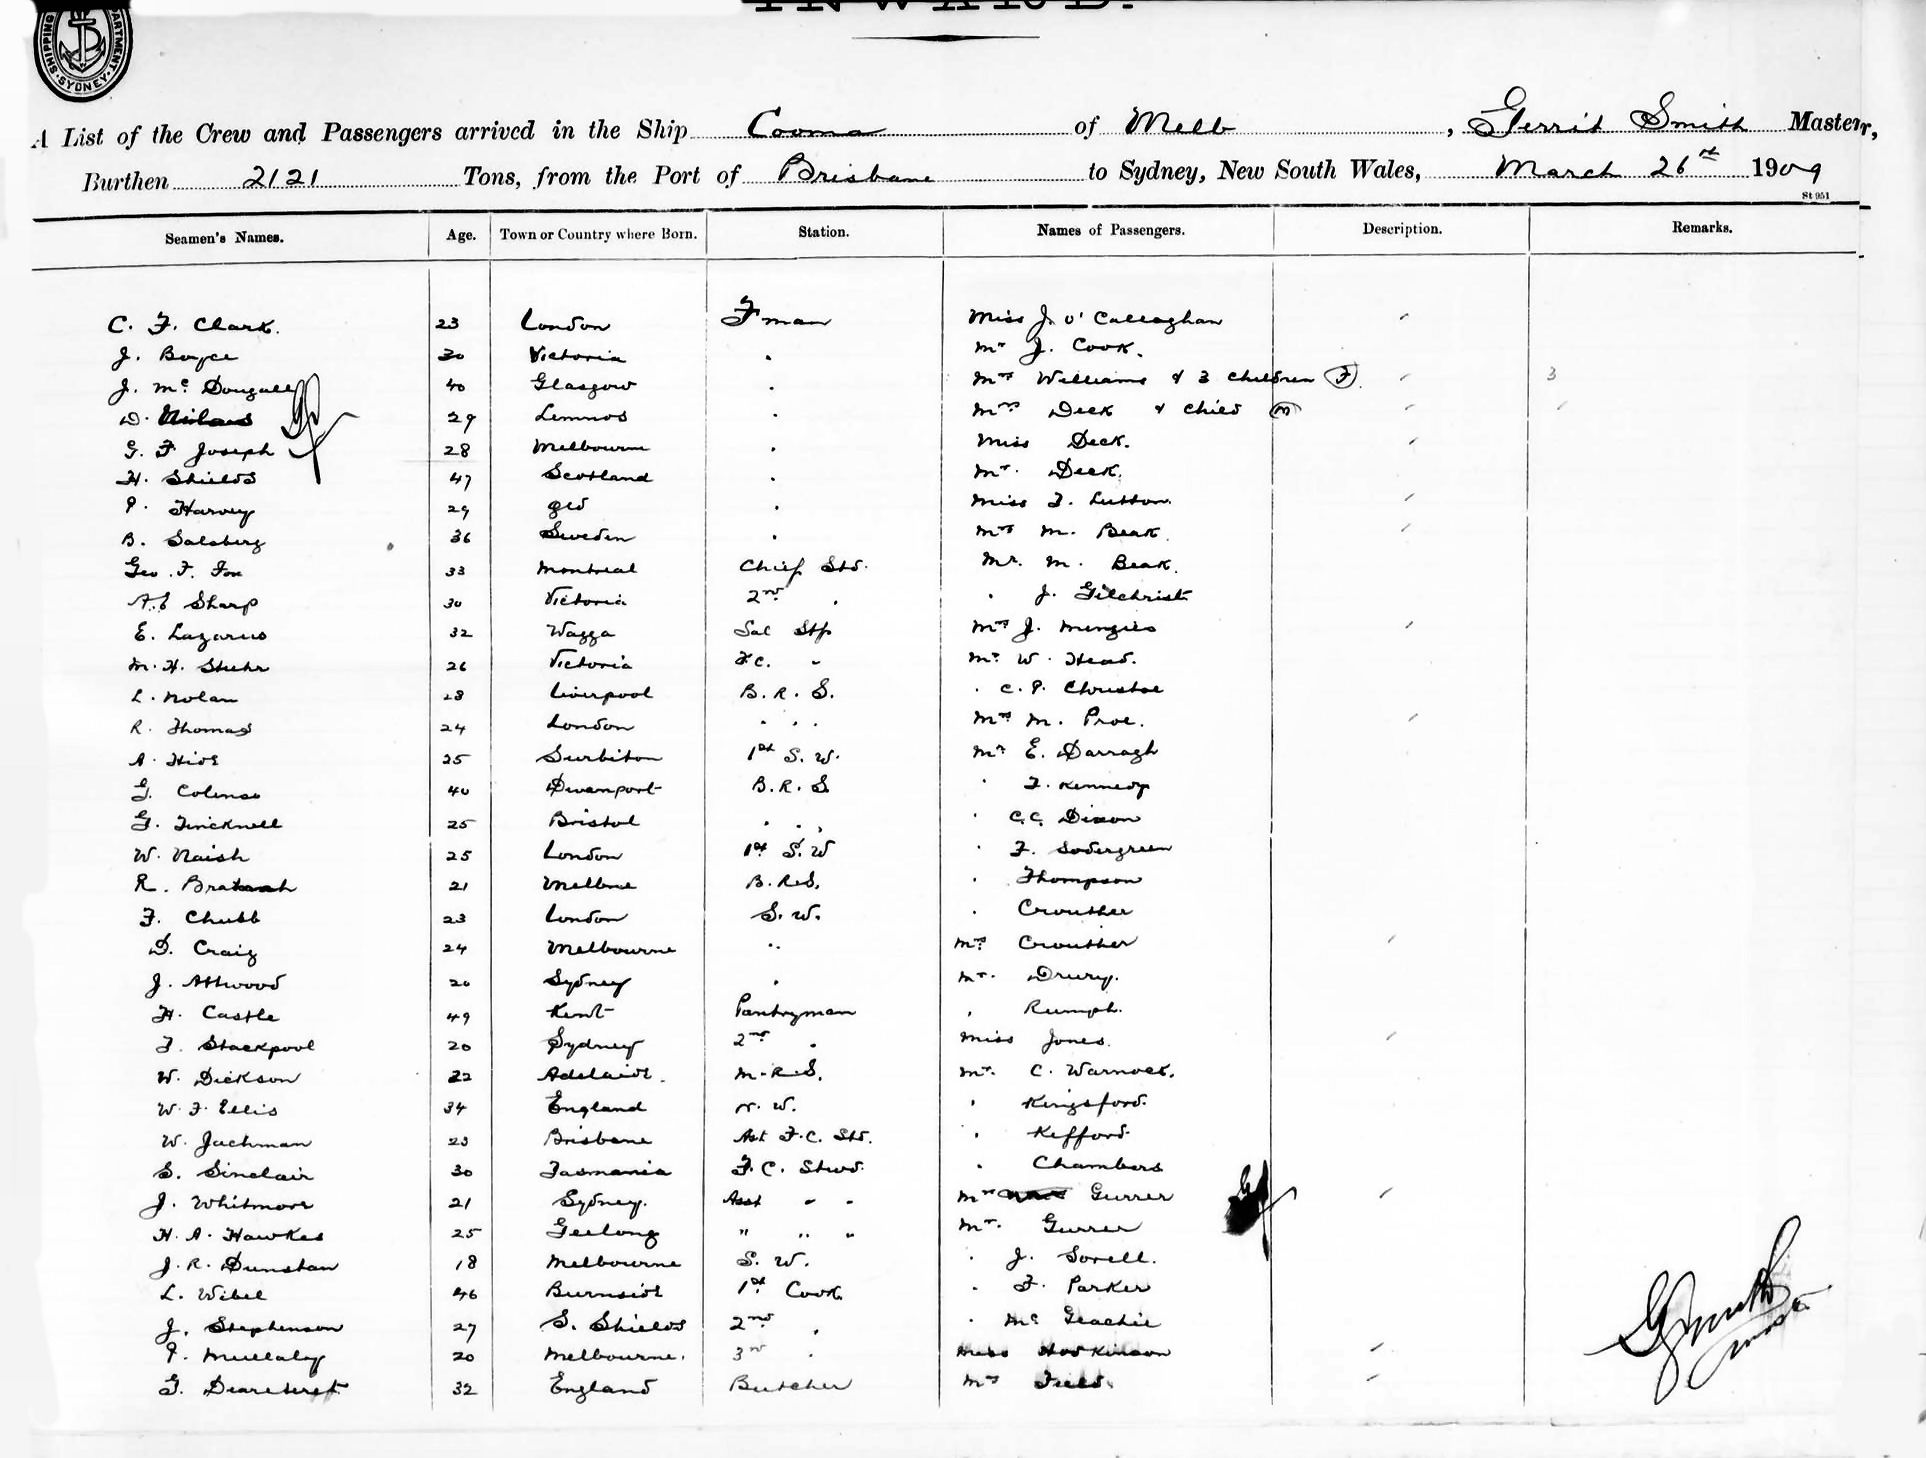 INWARD.
SHIPPING DEPARTMENT SYDNEY
A List of the Crew and Passengers arrived in the Ship Cooma of Melb, Gerrit Smith Master,
Burthen 2121 Tons, from the Port of Brisbane to Sydney, New South Wales, March 26th 1909
St 951
Seamen's Names. Age. Town or Country where Born. Station. Names of Passengers. Description. Remarks.
C. F. Clark. 23 London Fman Miss J. O'Callaghan
J. Boyce 30 Victoria . Mr J. Cook.
J. McDougall 40 Glasgow . Mrs Williams & 3 children (F) 3
D. 29 Lemnos . Mrs Deck & child (M)
G. F Joseph 28 Melbourne . Miss Deck.
H. Shields 47 Scotland . Mr. Deck.
P. Harvey 29 Qld . Miss F. Lutton.
B. Salsberg 36 Sweden . Mrs M. Beak.
Geo. F. Fox 33 Montreal Chief Std. Mr. M. Beak.
Sharp 30 Victoria 2nd . . J. Gilchrist
E. Lazarus 32 Wagga Sal Mrs J. Menzies
M. H. Stuhr 26 Victoria F.C. " Mr W. Head.
L. Nolan 28 Liverpool B. R. S. . C. P. Christoe
R. Thomas 24 London . . . Mrs M. Proe.
A. Hide 25 Surbiton 1st S. W. Mr E. Darragh
G. Colenso 40 Devonport B. R. S. . F. Kennedy
G. Tincknell 25 Bristol . . . . C. C. Dixon
W. Naish 25 London 1st S. W . F. Sodergreen
R. 21 Melbne B. R. S. . Thompson
F. Chubb 23 London S. W. . Crowther
D. Craig 24 Melbourne .. Mrs Crowther
J. Attwood 20 Sydney . Mr. Drury.
H. Castle 49 Kent Pantryman . Rumph.
F. Stackpool 20 Sydney 2nd . Miss Jones.
W. Dickson 22 Adelaide. M. R. S. Mr. C. Warnock.
W. F. Ellis 34 England N. W. . Kingsford.
W. Jachman 23 Brisbane Ast F. C. Std. . Kefford.
S. Sinclair 30 Tasmania F. C. Stwd. . Chambers
J. Whitmore 21 Sydney. Asst " " Mrs Gurrer
H. A. Hawkes 25 Geelong " " " Mr. Gurrer
J. R. Dunstan 18 Melbourne S. W. . J. Sorell.
L. Wibel 46 Burnside 1st Cook . F. Parker
J. Stephenson 27 S. Shields 2nd . . McGeachie
P. Mullaly 20 Melbourne. 3rd . Miss Hodkinson
G. 32 England Butcher Mrs Field.
G Smith
Master